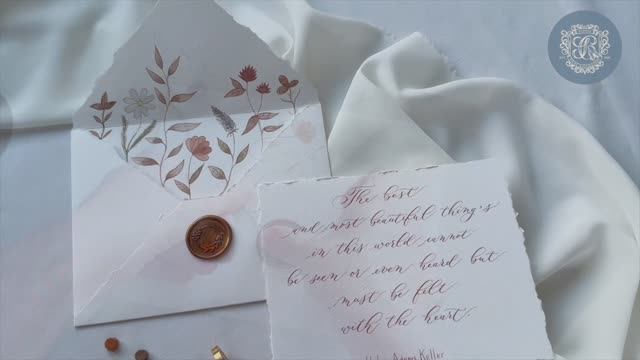 The best
and most beautiful thing's
in this world cannot
be seen or even heard but
must be felt
with the heart.
Adams Keller